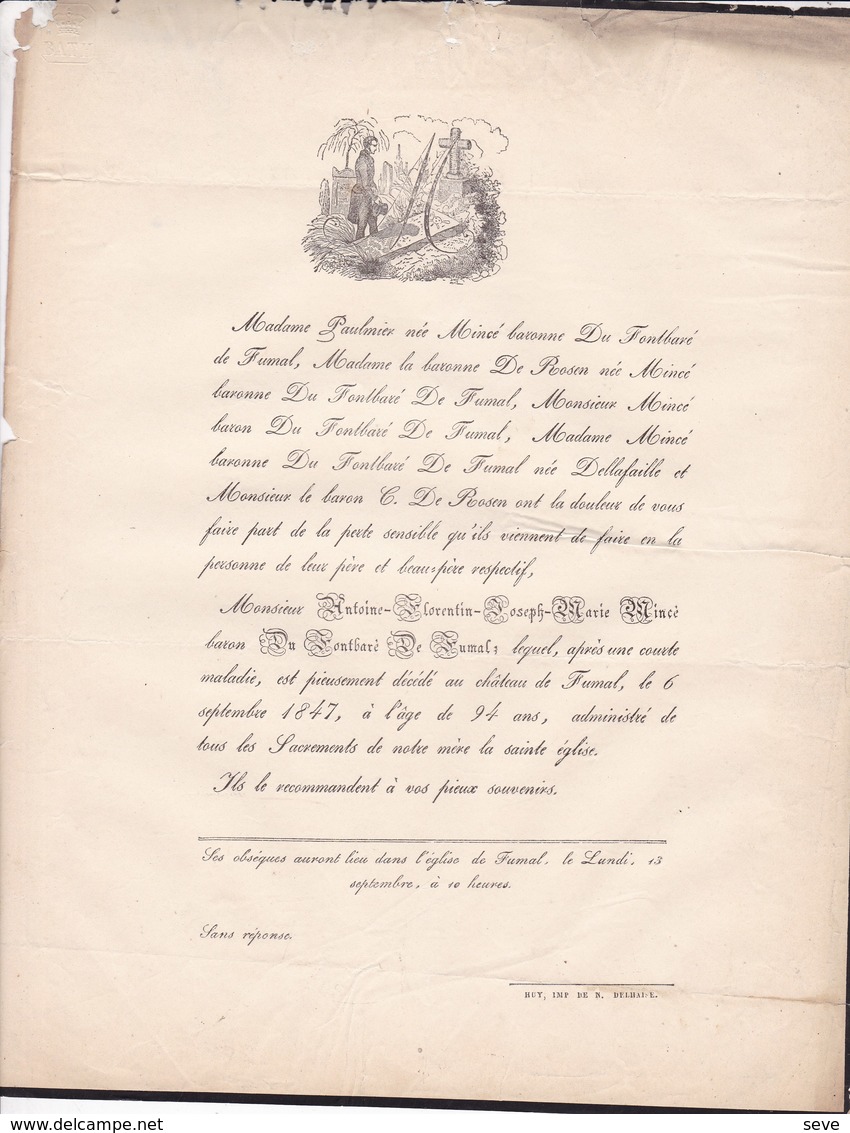 BATH
Madame Paulmier née Mincé baronne Du Fontbaré
de Fumal, Madame la baronne De Rosen née Mincé
baronne Du Fontbaré De Fumal, Monsieur Mincé
baron Du Fontbaré De Fumal, Madame Mincé
baronne Du Fontbaré De Fumal née Dellafaille et
Monsieur le baron C. De Rosen ont la douleur de vous
faire part de la perte sensible qu'ils viennent de faire en la
personne de leur père et beau-père respectif,
Monsieur Antoine-Florentin-Joseph-Marie Mincé
baron Du Fontbaré De Fumal; lequel, après une courte
maladie, est pieusement décédé au château de Fumal, le 6
septembre 1847, à l'âge de 94 ans, administré de
tous les Sacrements de notre mère la sainte église.
Ils le recommandent à vos pieux souvenirs.
Ses obséques auront lieu dans l'église de Fumal, le Lundi, 13
septembre, à 10 heures.
Sans réponse.
HUY, IMP DE N. DELHAISE.
delcampe.net
seve